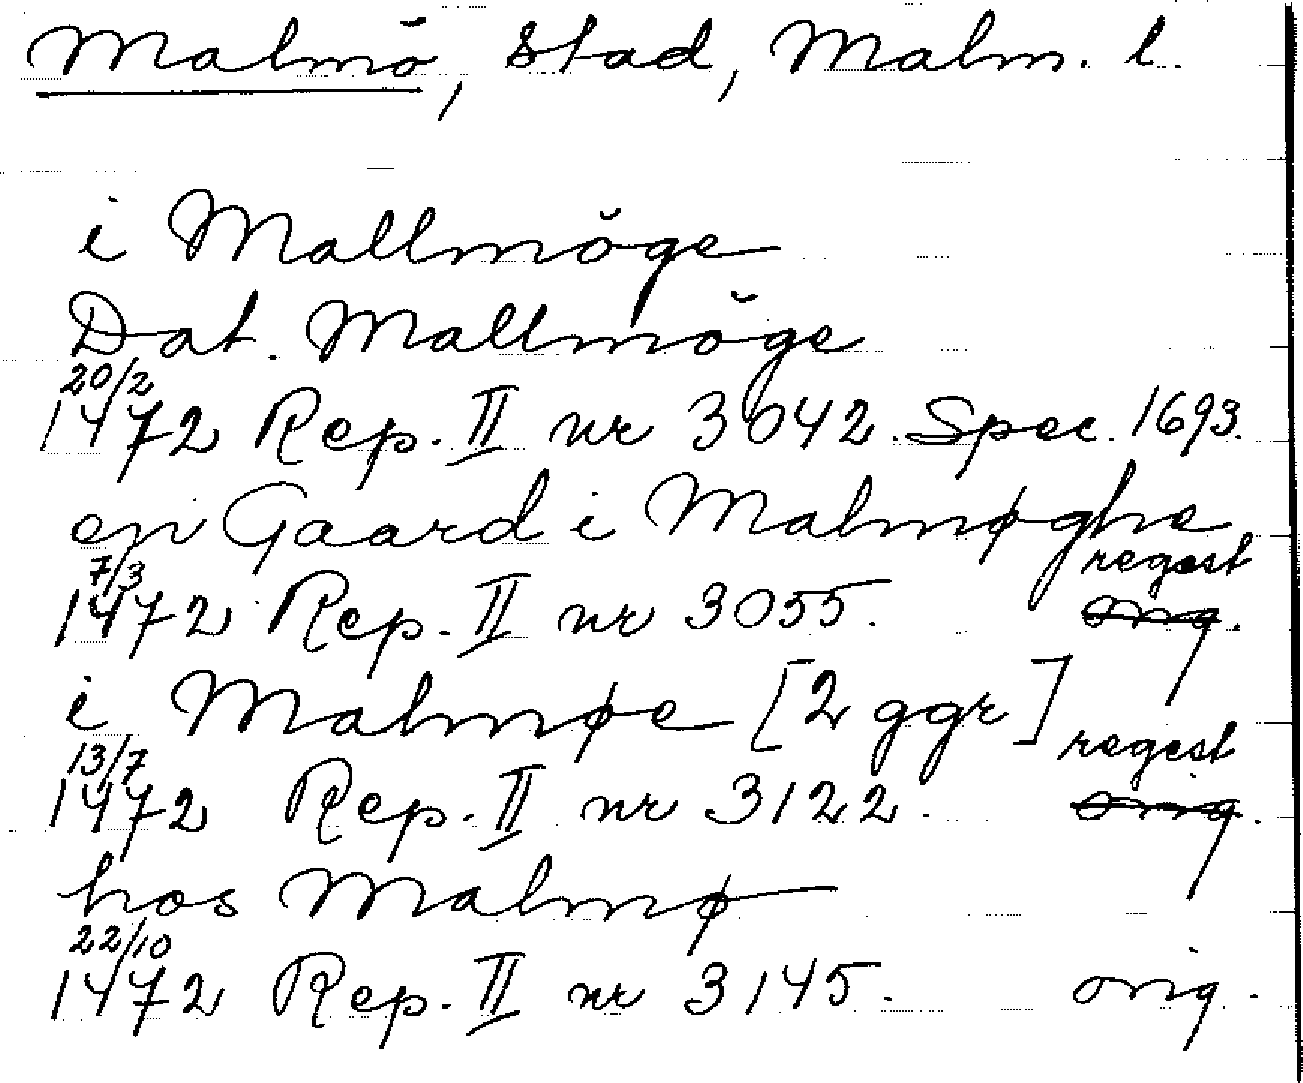 Malmö, stad, Malm. l.
i Mallmöge
Dat. Mallmöge
20/2
1472 Rep. II nr 3042. Spec. 1693.
en Gaard i Malmøghe
7/3 regest
1472 Rep. II nr 3055. orig.
i Malmøe [2 ggr]
13/7 regest
1472 Rep. II nr 3122. orig.
hos Malmø
22/10
1472 Rep. II nr 3145. orig.